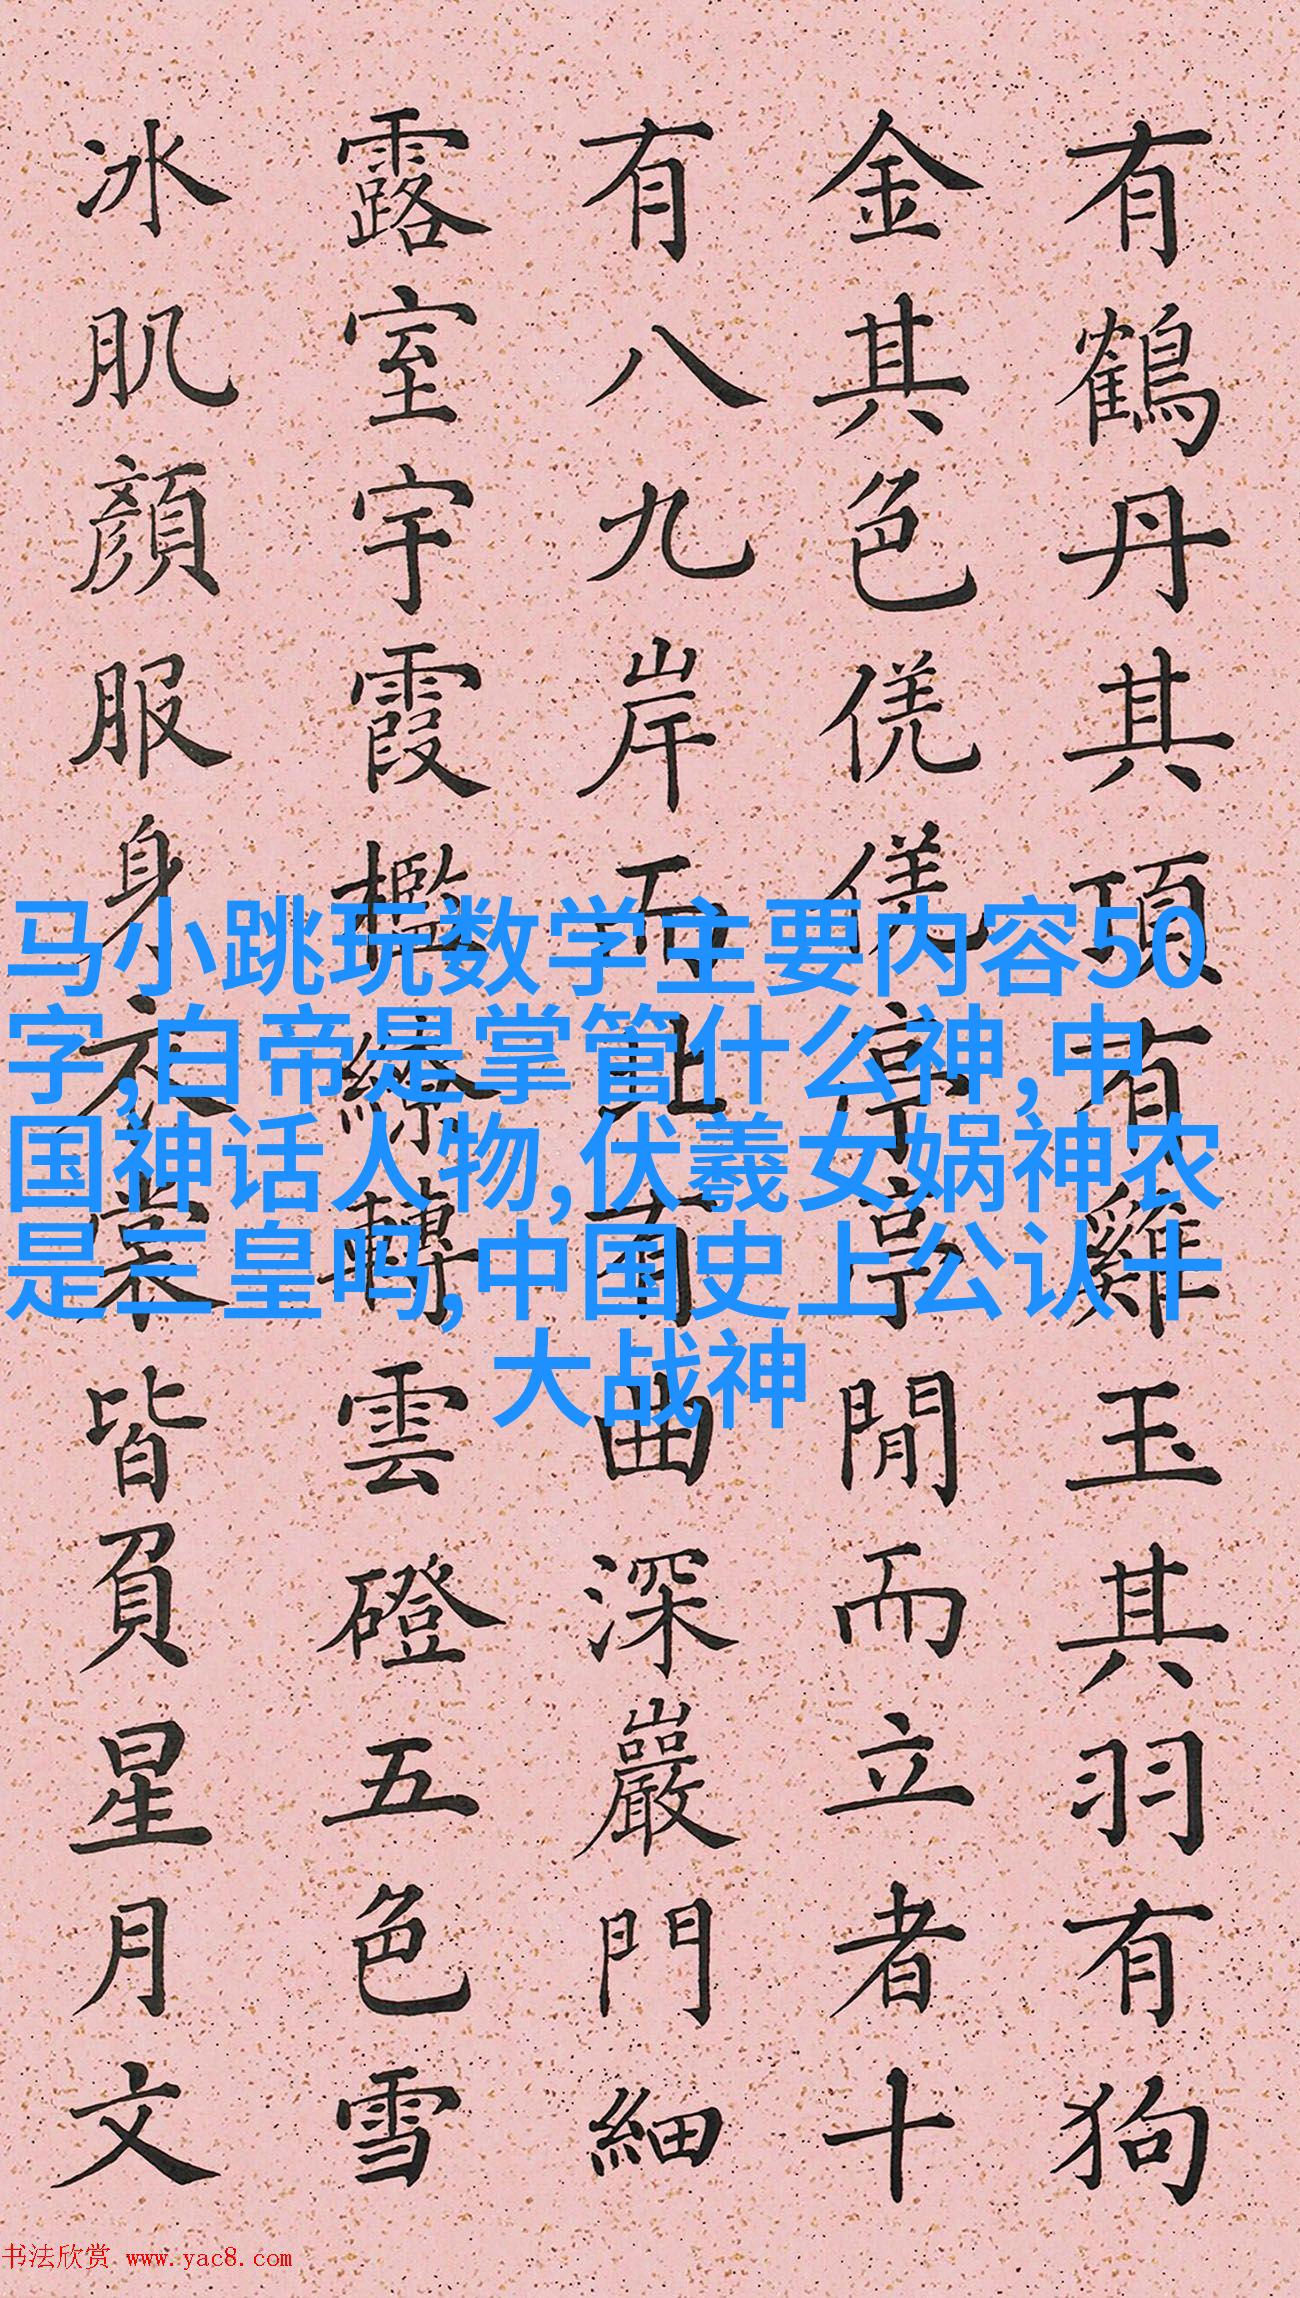 有鶴丹其頂有雞玉其羽有狗
金其色亭亭閒而立者十
有八九岸有曲深巖門細
露室宇霞檻轉雲磴五色雪
冰肌顏服身衣裳皆負星月文
马小跳玩数学主要内容50
字,白帝是掌管什么神,中
国神话人物,伏羲女娲神农
是三皇吗,中国史上公认十
大战神
书法欣赏 www.yac8.com